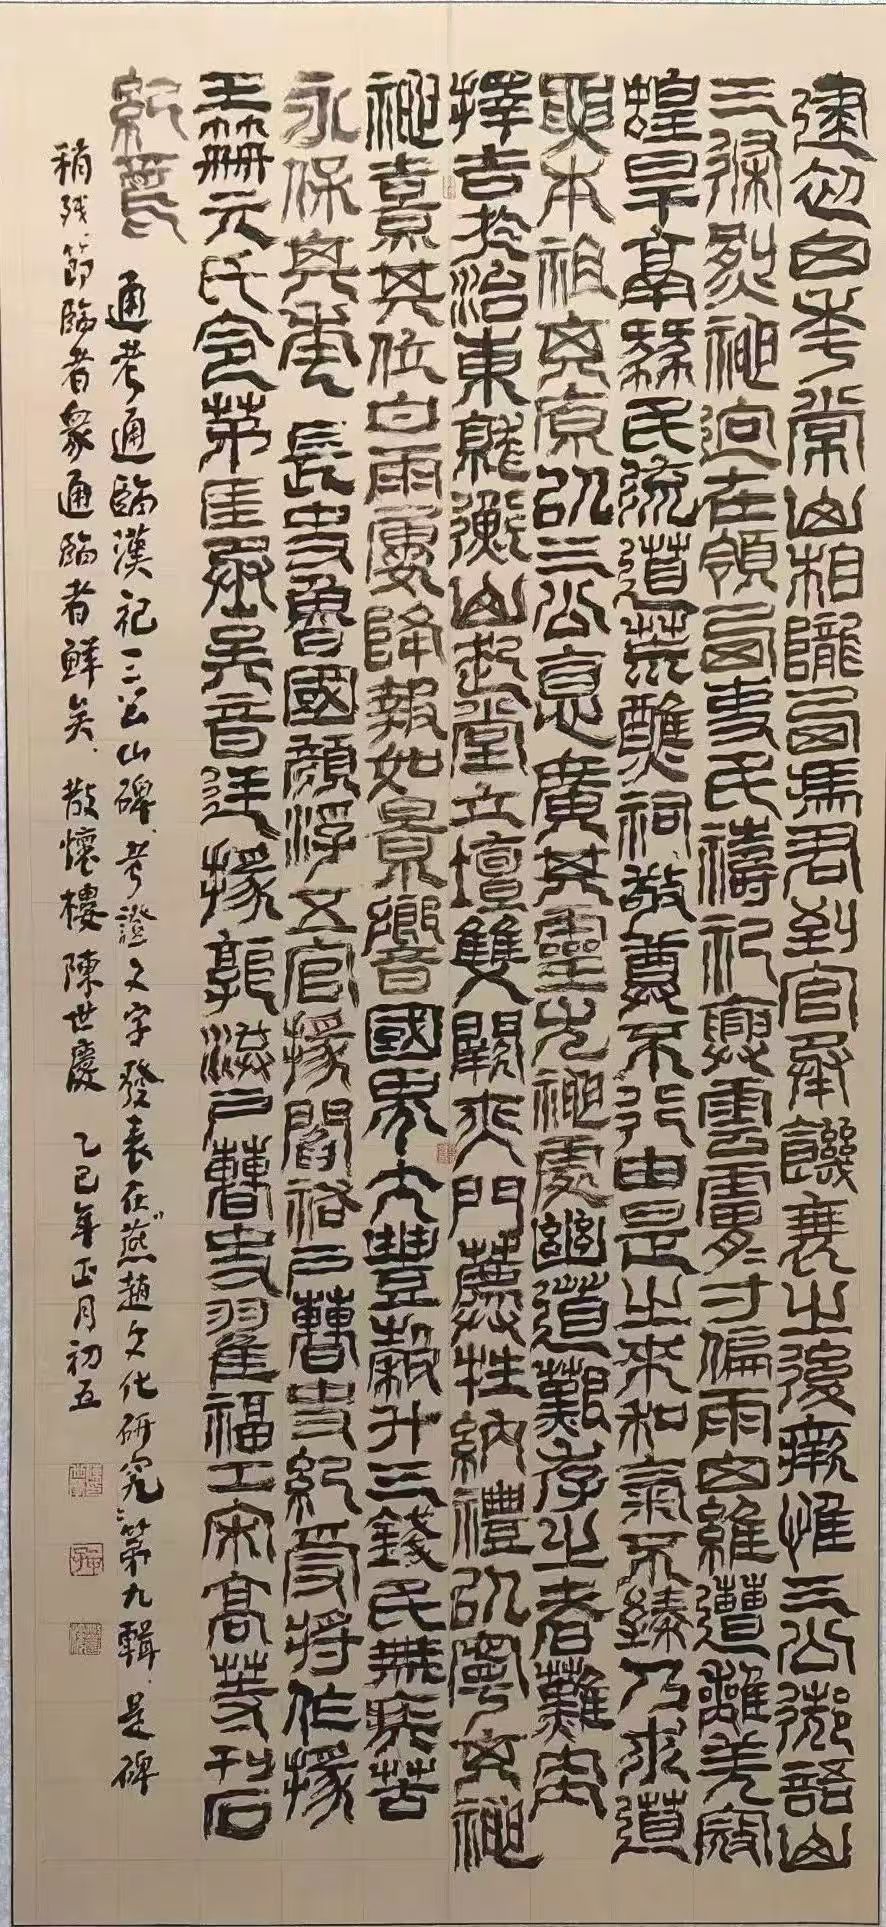 建初四年常山相隴西馮君到官承饑衰之後癘惟三公御語山
三條別神迥在領西吏民禱祀興雲膚寸偏雨四維遭離羌寇
蝗旱鬲民流道荒醮祠敬奠不行由是之來和氣不臻乃求道
要本祖其原以三公惪廣其靈尤神處幽道艱存之者難卜
擇吉於治東就衡山起堂立壇雙闕夾門薦牲納禮以寧其神
神熹其位甘雨屢降報如景響國界大豐穀斗三錢民無疾苦
永保其年 長史魯國顏浮五官掾閻祐戶曹史紀受將作掾
王笧元氏令茅匡丞吳音廷掾郭洪戶曹史翟福工宋高等刊石
紀焉 通考通臨漢祀三公山碑、考證文字發表在"燕趙文化研究"第九輯、是碑
稍殘、節臨者眾通臨者鮮矣、散懷樓陳世慶 乙巳年正月初五